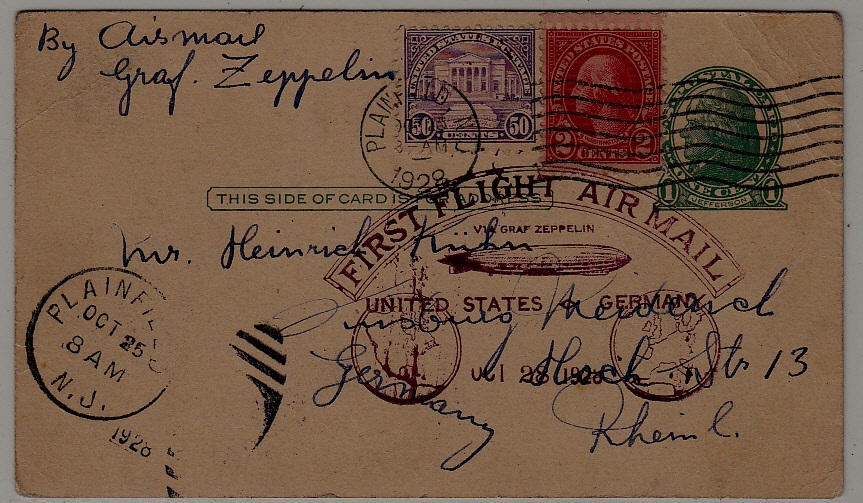 By Airmail
Graf. Zeppelin
UNITED STATES POSTAGE
50 CENTS 50
UNITED STATES POSTAGE
2 CENTS 2
1 ONE CENT 1
JEFFERSON
PLAINFIELD
8 AM
1928
THIS SIDE OF CARD IS FOR ADDRESS
FIRST FLIGHT AIR MAIL
VIA GRAF ZEPPELIN
UNITED STATES GERMANY
1928
Mr. Heinrich Kühn
Str 13
Germany
Rheinl.
PLAINFIELD
OCT 25
8 AM
N.J.
1928